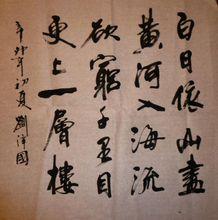 白日依山盡
黃河入海流
欲窮千里目
更上一層樓
辛卯年初夏 劉洋國